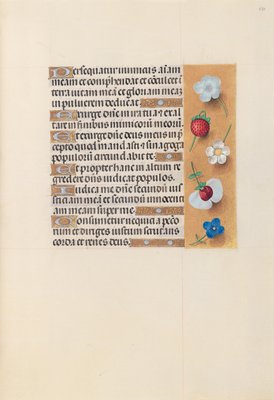 Persequatur inimicus aīam
meam et comprehendat et cōculcet ī
terra vitam meā et gloriam meaz
in pulverem deducat.
Exurge dn̄e in ira tua et exal
tare in finibus inimicorū meorū.
Et exurge dn̄e deus meus in p̄
cepto quod mandasti et sinagoga
populorū circundabit te.
Et propter hanc in altum re
gredere dn̄s iudicat populos.
Iudica me dn̄e secundū ius
ticiam meā et secundū innocenti
am meam super me.
Consumetur nequicia pecc̄o
rum et diriges iustum scrutans
corda et renes deus.